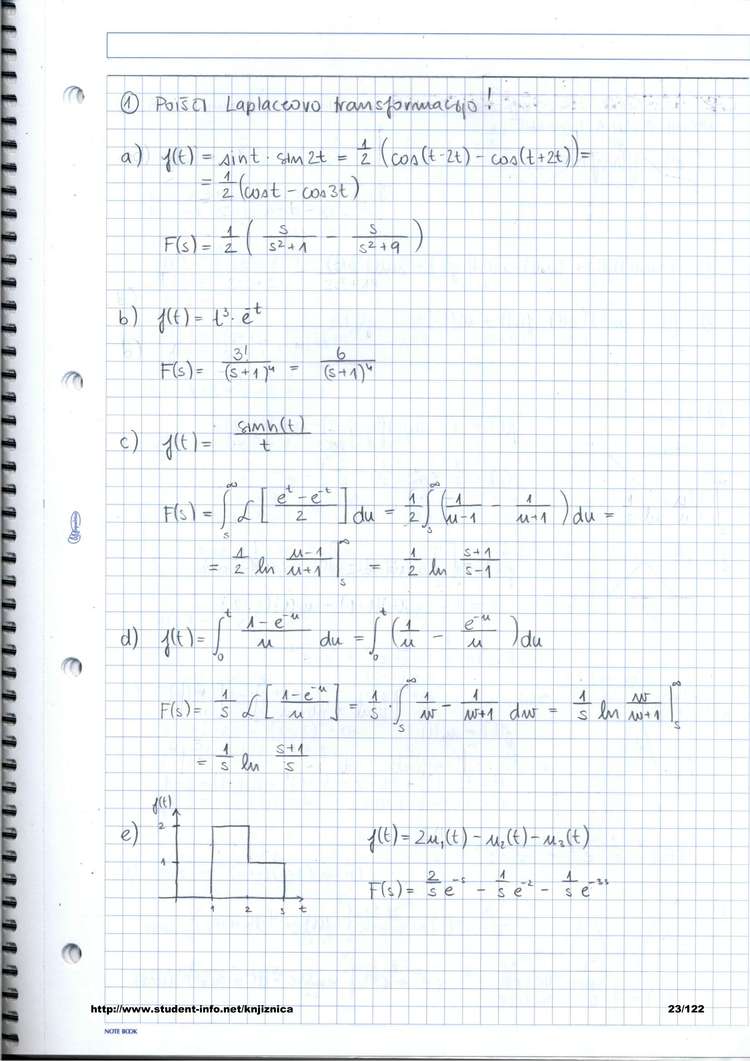 ① POIŠČI Laplaceovo transformacijo!
a) f(t) = sint · sin2t = 1/2 (cos(t-2t) - cos(t+2t)) =
= 1/2 (cost - cos3t)
F(s) = 1/2 ( s/(s²+1) - s/(s²+9) )
b) f(t) = t³ · e^-t
F(s) = 3!/(s+1)⁴ = 6/(s+1)⁴
c) f(t) = sinh(t)/t
F(s) = ∫_s^∞ ℒ[ (e^t - e^-t)/2 ] du = 1/2 ∫_s^∞ ( 1/(u-1) - 1/(u+1) ) du =
= 1/2 ln (u-1)/(u+1) |_s^∞ = 1/2 ln (s+1)/(s-1)
d) f(t) = ∫_0^t (1-e^-u)/u du = ∫_0^t ( 1/u - e^-u/u ) du
F(s) = 1/s ℒ[ (1-e^-u)/u ] = 1/s · ∫_s^∞ 1/w - 1/(w+1) dw = 1/s ln w/(w+1) |_s^∞
= 1/s ln (s+1)/s
e) f(t)
2
1
1 2 3 t
f(t) = 2u₁(t) - u₂(t) - u₃(t)
F(s) = 2/s e^-s - 1/s e^-2 - 1/s e^-3s
http://www.student-info.net/knjiznica
23/122
NOTE BOOK